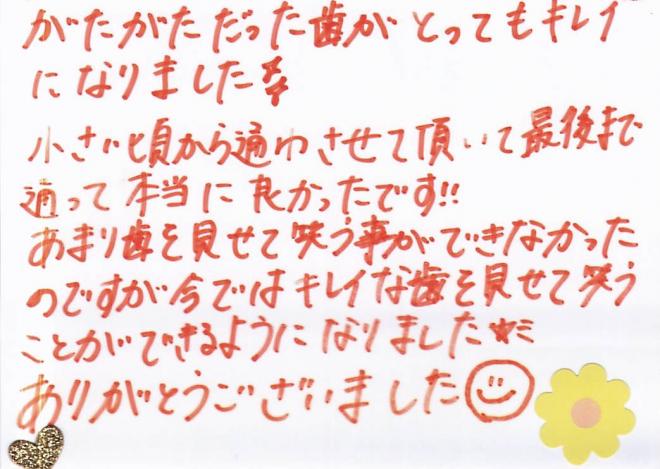 がたがただった歯がとってもキレイ
になりました
小さい頃から通わさせて頂いて最後まで
通って本当に良かったです!!
あまり歯を見せて笑う事ができなかった
のですが今ではキレイな歯を見せて笑う
ことができるようになりました★ミ
ありがとうございました☺